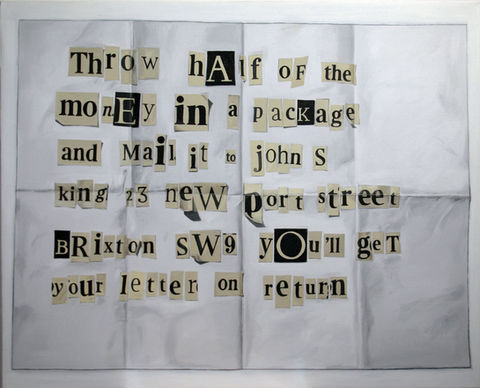 Throw hAlf oF the
monEy in a pacKage
and Mail it to john S
king 23 neW port street
BRixton SW9 yOu'll geT
your letter on return